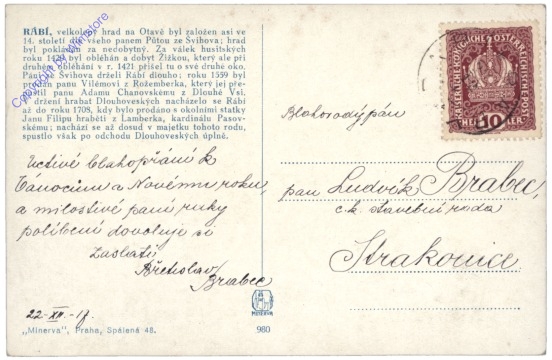 RÁBÍ, velkolepý hrad na Otavě byl založen asi ve
14. století dle všeho panem Půtou ze Švihova; hrad
byl pokládán za nedobytný. Za válek husitských
roku 1420 byl obléhán a dobyt Žižkou, který ale při
druhém obléhání v r. 1421 přišel tu o své druhé oko.
Páni ze Švihova drželi Rábí dlouho; roku 1559 byl
prodán panu Vilémovi z Rožemberka, který jej pře-
pustil panu Adamu Chanovskému z Dlouhé Vsi.
V držení hrabat Dlouhoveských nacházelo se Rábí
až do roku 1708, kdy bylo prodáno s okolními statky
Janu Filipu hraběti z Lamberka, kardinálu Pasov-
skému; nachází se až dosud v majetku tohoto rodu,
spustlo však po odchodu Dlouhoveských úplně.
Uctivé blahopřání k
Vánocům a Novému roku,
a milostivé paní ruky
políbení dovoluje si
zaslati
Břetislav
Brabec
22-XII.-17.
„Minerva", Praha, Spálená 48.
980
MINERVA
KAISERLICHE KÖNIGLICHE ÖSTERREICHISCHE POST
HELLER 10
Blahorodý pán
pan Ludvík Brabec,
c.k. stavební rada
Strakonice